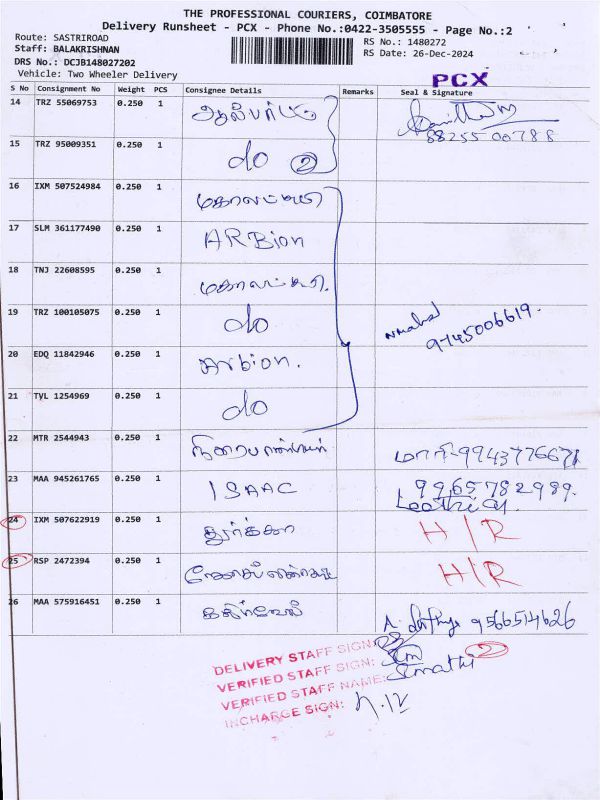 THE PROFESSIONAL COURIERS, COIMBATORE
Delivery Runsheet - PCX - Phone No.:0422-3505555 - Page No.:2
Route: SASTRIROAD
Staff: BALAKRISHNAN
DRS No.: DCJB148027202
Vehicle: Two Wheeler Delivery
RS No.: 1480272
RS Date: 26-Dec-2024
PCX
S No Consignment No Weight PCS Consignee Details Remarks Seal & Signature
14 TRZ 55069753 0.250 1
8825500788
15 TRZ 95009351 0.250 1 do 2
16 IXM 507524984 0.250 1
17 SLM 361177490 0.250 1 ARBion
18 TNJ 22608595 0.250 1
19 TRZ 100105075 0.250 1 do 9745006619.
20 EDQ 11842946 0.250 1 Arbion.
21 TVL 1254969 0.250 1 do
22 MTR 2544943 0.250 1 மாரி-9943776671
23 MAA 945261765 0.250 1 ISAAC 9965782989.
24 IXM 507622919 0.250 1 துர்க்கா H/R
25 RSP 2472394 0.250 1 H/R
26 MAA 575916451 0.250 1 கதிர்வேல் 9566514626
DELIVERY STAFF SIGN:
VERIFIED STAFF SIGN: 2
VERIFIED STAFF NAME:
INCHARGE SIGN: